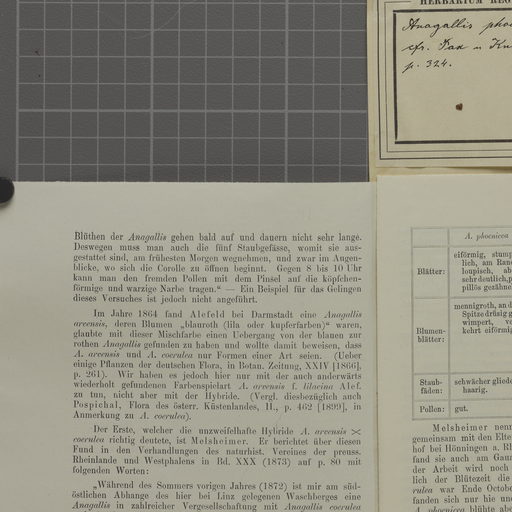 HERBARIUM REG
Anagallis phoe
cfr. Pax u Kn
p. 324.
Blüthen der Anagallis gehen bald auf und dauern nicht sehr lange.
Deswegen muss man auch die fünf Staubgefässe, womit sie aus-
gestattet sind, am frühesten Morgen wegnehmen, und zwar im Augen-
blicke, wo sich die Corolle zu öffnen beginnt. Gegen 8 bis 10 Uhr
kann man den fremden Pollen mit dem Pinsel auf die köpfchen-
förmige und warzige Narbe tragen.“ — Ein Beispiel für das Gelingen
dieses Versuches ist jedoch nicht angeführt.
Im Jahre 1864 fand Alefeld bei Darmstadt eine Anagallis
arvensis, deren Blumen „blauroth (lila oder kupferfarben)“ waren,
glaubte mit dieser Mischfarbe einen Uebergang von der blauen zur
rothen Anagallis gefunden zu haben und wollte damit beweisen, dass
A. arvensis und A. coerulea nur Formen einer Art seien. (Ueber
einige Pflanzen der deutschen Flora, in Botan. Zeitung, XXIV [1866],
p. 261). Wir haben es jedoch hier nur mit der auch anderwärts
wiederholt gefundenen Farbenspielart A. arvensis f. lilacina Alef.
zu tun, nicht aber mit der Hybride. (Vergl. diesbezüglich auch
Pospichal, Flora des österr. Küstenlandes, II., p. 462 [1899], in
Anmerkung zu A. coerulea).
Der Erste, welcher die unzweifelhafte Hybride A. arvensis ×
coerulea richtig deutete, ist Melsheimer. Er berichtet über diesen
Fund in den Verhandlungen des naturhist. Vereines der preuss.
Rheinlande und Westphalens in Bd. XXX (1873) auf p. 80 mit
folgenden Worten:
„Während des Sommers vorigen Jahres (1872) ist mir am süd-
östlichen Abhange des hier bei Linz gelegenen Waschberges eine
Anagallis in zahlreicher Vergesellschaftung mit Anagallis coerulea
A. phoenicea
Blätter:
eiförmig, stump
lich, am Rand
loupisch, ab
sehr deutlich, p
pillös gezähne
Blumen-
blätter:
mennigroth, an d
Spitze drüsig g
wimpert, ve
kehrt eiförmig
Staub-
fäden:
schwächer gliede
haarig.
Pollen:
gut.
Melsheimer nenn
gemeinsam mit den Elte
hof bei Hönningen a. Rh
fand sie auch am Gaum
der Arbeit wird noch
lich der Blütezeit die
rulea war Ende Octobe
fanden sich nur hie und
A. phoenicea blühte abe